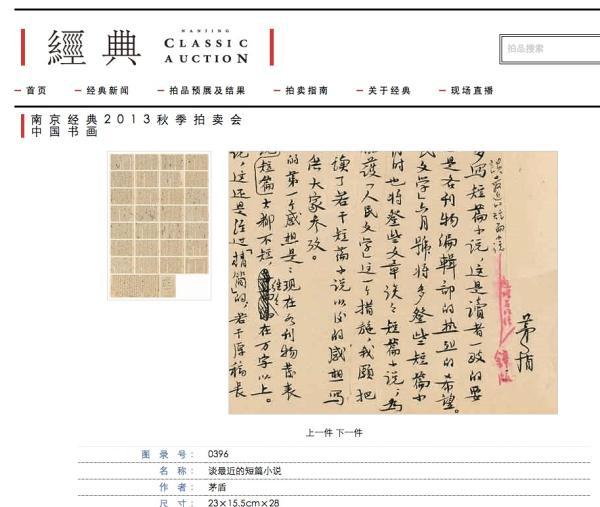 經典
NANJING
CLASSIC
AUCTION
拍品搜索
首页
经典新闻
拍品预展及结果
拍卖指南
关于经典
现场直播
南京经典2013秋季拍卖会
中国书画
谈最近的短篇小说
茅盾
多写短篇小说，这是读者一致的要
是各刊物编辑部的热烈的希望。
民文学》六月号将多登些短篇小
同时也将登些文章谈谈短篇小说；为
拥护《人民文学》这一措施，我愿把
读了若干短篇小说以后的感想写
供大家参考。
的第一个感想是：现在各刊物发表
短篇）大都不短，往往在万字以上。
说，这还是经过“精简”的，若干原稿长
上一件 下一件
图录号： 0396
名称： 谈最近的短篇小说
作者： 茅盾
尺寸： 23×15.5cm×28